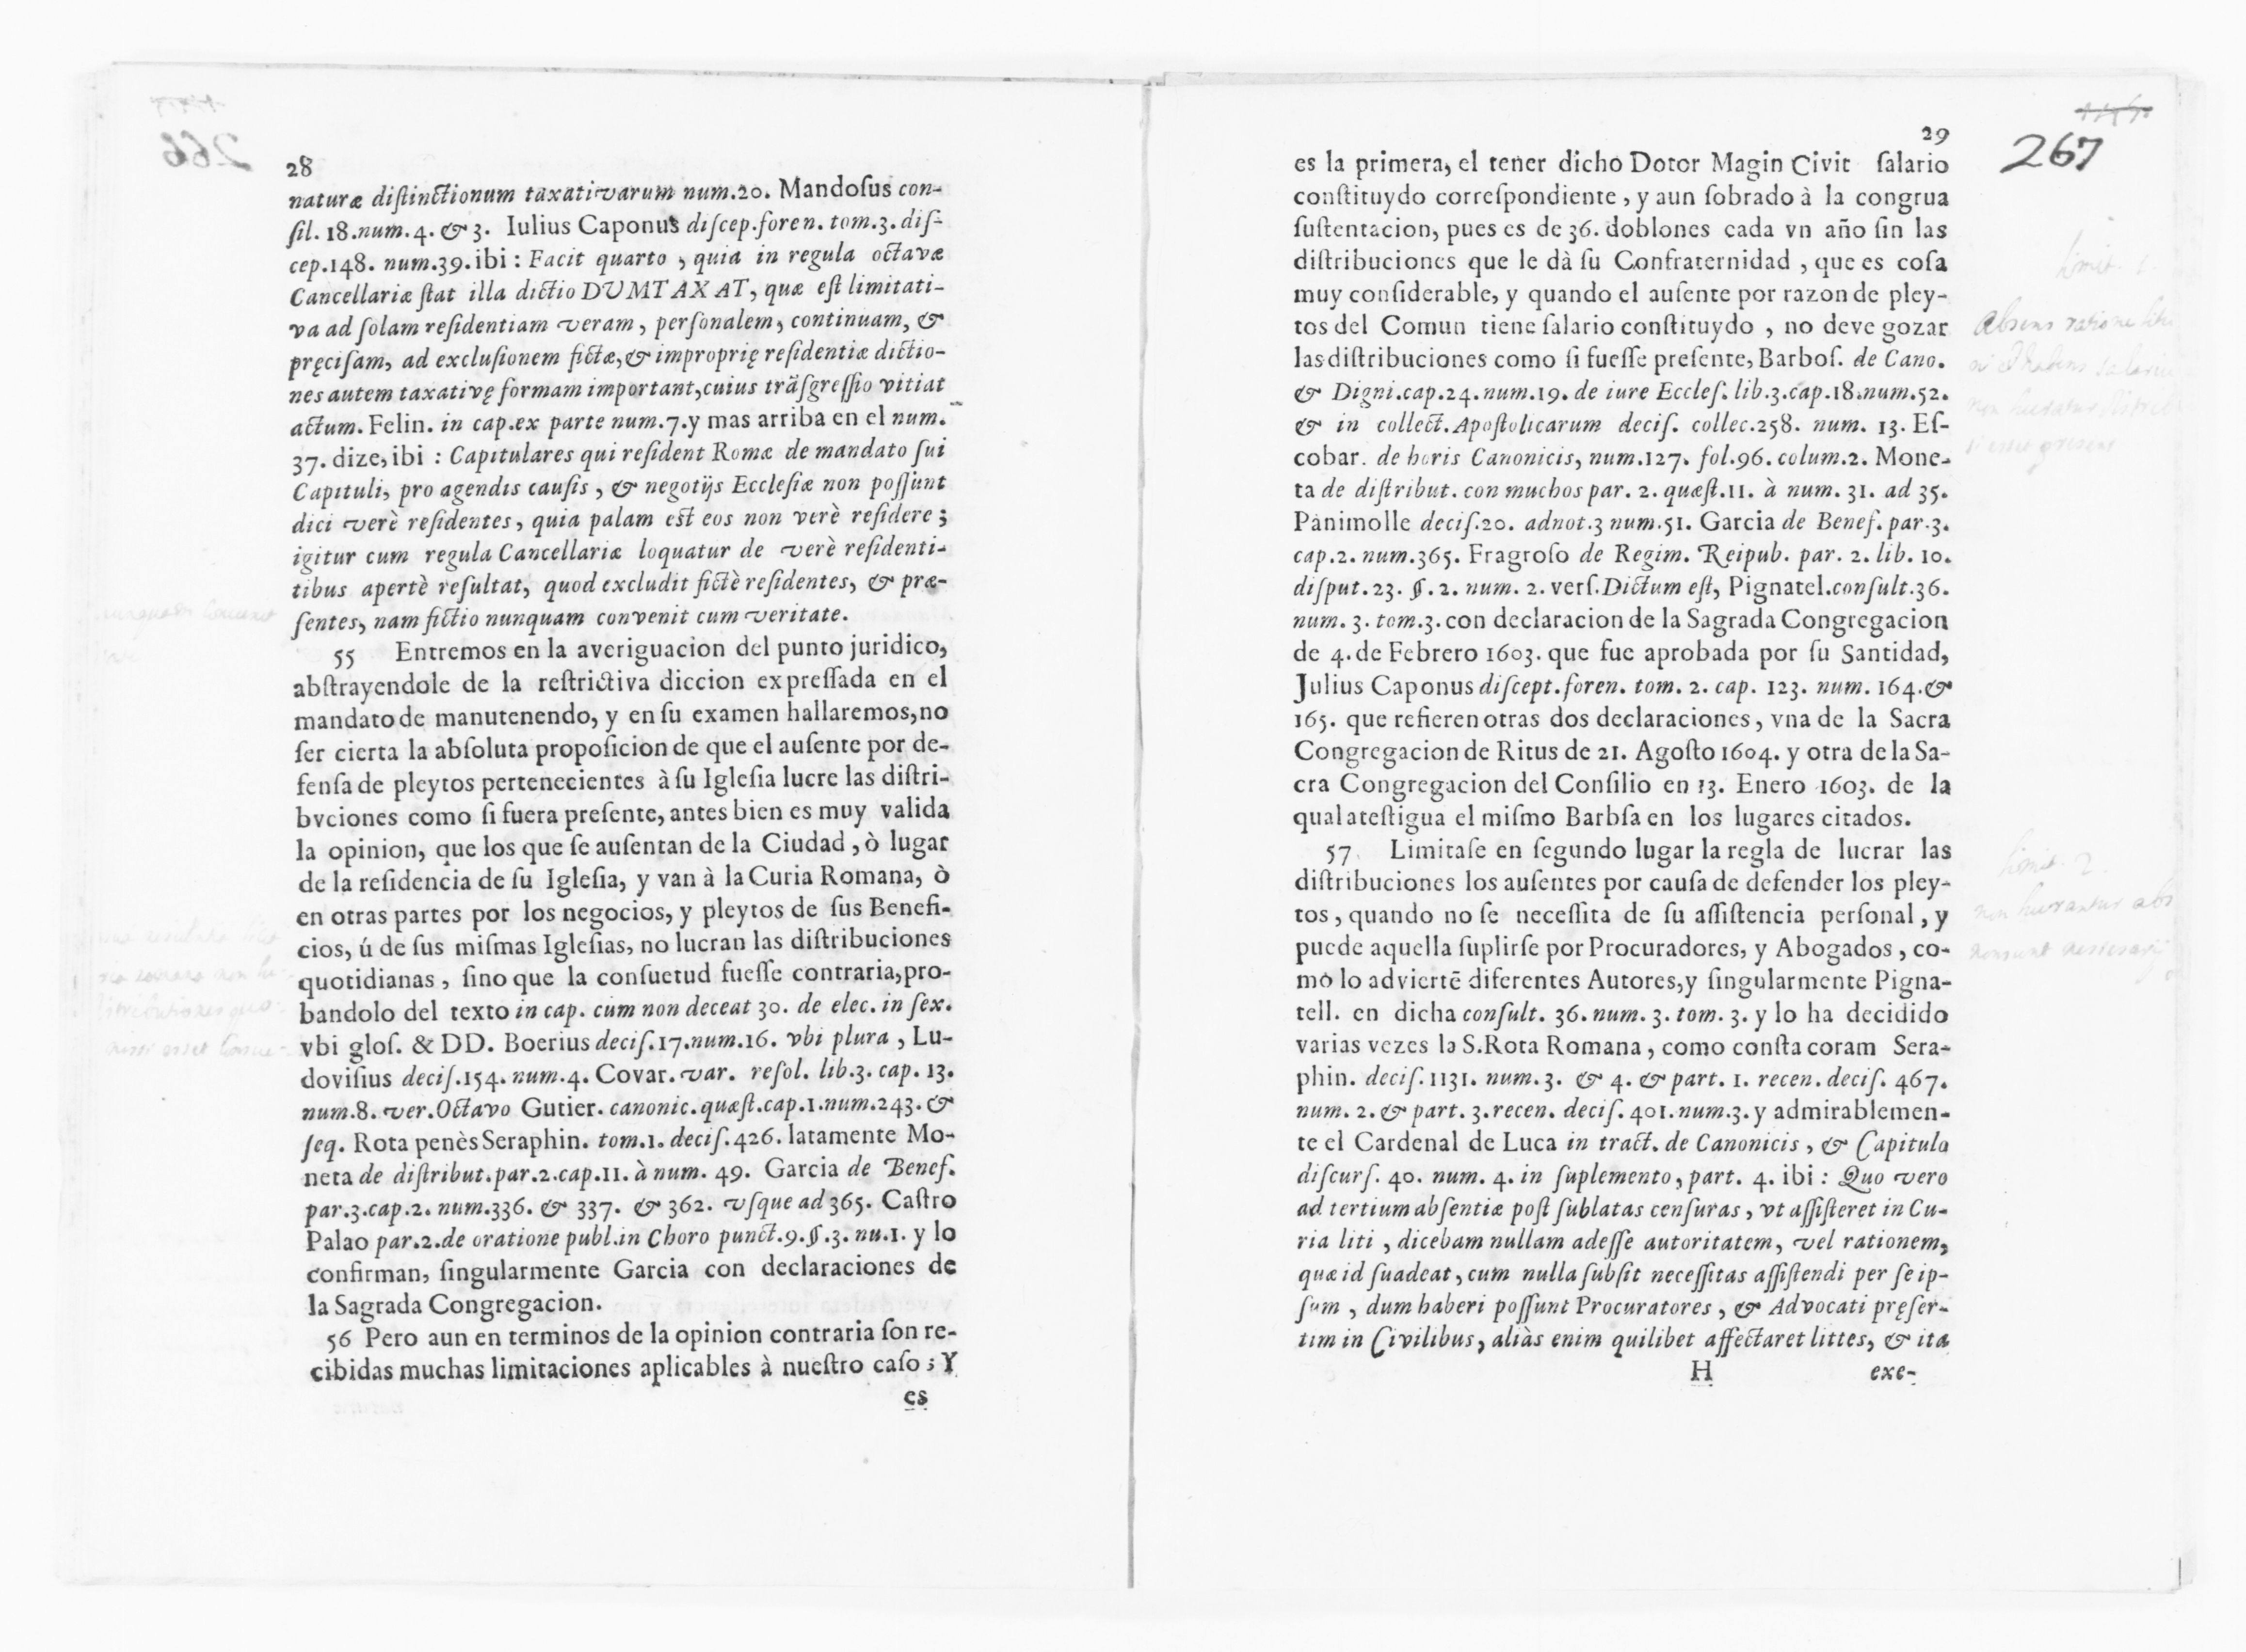 28
naturæ diſtinctionum taxativarum num.20. Mandoſus con-
ſil. 18.num. 4. & 3. Iulius Caponus diſcep.foren. tom.3. diſ-
cep.148. num.39.ibi : Facit quarto , quia in regula octavæ
Cancellariæ ſtat illa dictio DUMTAXAT, quæ eſt limitati-
va ad ſolam reſidentiam veram, perſonalem, continuam, &
pręciſam, ad excluſionem fictæ,& improprię reſidentiæ dictio-
nes autem taxativę formam important,cuius trãſgreſſio vitiat
actum. Felin. in cap.ex parte num.7.y mas arriba en el num.
37. dize,ibi : Capitulares qui reſident Romæ de mandato ſui
Capituli, pro agendis cauſis , & negotijs Eccleſiæ non poſſunt
dici verè reſidentes, quia palam eſt eos non verè reſidere ;
igitur cum regula Cancellariæ loquatur de verè reſidenti-
tibus apertè reſultat, quod excludit fictè reſidentes, & præ-
ſentes, nam fictio nunquam convenit cum veritate.
55 Entremos en la averiguacion del punto juridico,
abſtrayendole de la reſtrictiva diccion expreſſada en el
mandato de manutenendo, y en ſu examen hallaremos,no
ſer cierta la abſoluta propoſicion de que el auſente por de-
fenſa de pleytos pertenecientes à ſu Igleſia lucre las diſtri-
bvciones como ſi fuera preſente, antes bien es muy valida
la opinion, que los que ſe auſentan de la Ciudad , ò lugar
de la reſidencia de ſu Igleſia, y van à la Curia Romana, ò
en otras partes por los negocios, y pleytos de ſus Benefi-
cios, ú de ſus miſmas Igleſias, no lucran las diſtribuciones
quotidianas , ſino que la conſuetud fueſſe contraria,pro-
bandolo del texto in cap. cum non deceat 30. de elec. in ſex.
vbi gloſ. & DD. Boerius deciſ.17.num.16. vbi plura , Lu-
doviſius deciſ.154. num.4. Covar. var. reſol. lib.3. cap. 13.
num.8. ver.Octavo Gutier. canonic.quæſt.cap.1.num.243. &
ſeq. Rota penès Seraphin. tom.1. deciſ.426. latamente Mo-
neta de diſtribut.par.2.cap.11. à num. 49. Garcia de Benef.
par.3.cap.2. num.336. & 337. & 362. vſque ad 365. Caſtro
Palao par.2.de oratione publ.in Choro punct.9.§.3. nu.1. y lo
confirman, ſingularmente Garcia con declaraciones de
la Sagrada Congregacion.
56 Pero aun en terminos de la opinion contraria ſon re-
cibidas muchas limitaciones aplicables à nueſtro caſo ; Y
es
29
267
es la primera, el tener dicho Dotor Magin Civit ſalario
conſtituydo correſpondiente , y aun ſobrado à la congrua
ſuſtentacion, pues es de 36. doblones cada vn año ſin las
diſtribuciones que le dà ſu Confraternidad , que es coſa
muy conſiderable, y quando el auſente por razon de pley-
tos del Comun tiene ſalario conſtituydo , no deve gozar
las diſtribuciones como ſi fueſſe preſente, Barboſ. de Cano.
& Digni.cap.24.num.19. de iure Eccleſ. lib.3.cap.18.num.52.
& in collect. Apoſtolicarum deciſ. collec.258. num. 13. Eſ-
cobar. de horis Canonicis, num.127. fol.96. colum.2. Mone-
ta de diſtribut. con muchos par. 2. quæſt.11. à num. 31. ad 35.
Panimolle deciſ.20. adnot.3 num.51. Garcia de Benef. par.3.
cap.2. num.365. Fragroſo de Regim. Reipub. par. 2. lib. 10.
diſput. 23. §. 2. num. 2. verſ. Dictum eſt, Pignatel.conſult.36.
num. 3. tom.3. con declaracion de la Sagrada Congregacion
de 4. de Febrero 1603. que fue aprobada por ſu Santidad,
Julius Caponus diſcept.foren. tom. 2. cap. 123. num. 164.&
165. que refieren otras dos declaraciones , vna de la Sacra
Congregacion de Ritus de 21. Agoſto 1604. y otra de la Sa-
cra Congregacion del Conſilio en 13. Enero 1603. de la
qual ateſtigua el miſmo Barbſa en los lugares citados.
57 Limitaſe en ſegundo lugar la regla de lucrar las
diſtribuciones los auſentes por cauſa de defender los pley-
tos , quando no ſe neceſſita de ſu aſſiſtencia perſonal , y
puede aquella ſuplirſe por Procuradores, y Abogados , co-
mo lo adviertẽ diferentes Autores,y ſingularmente Pigna-
tell. en dicha conſult. 36. num. 3. tom. 3. y lo ha decidido
varias vezes la S.Rota Romana , como conſta coram Sera-
phin. deciſ. 1131. num. 3. & 4. & part. 1. recen. deciſ. 467.
num. 2. & part. 3. recen. deciſ. 401. num.3. y admirablemen-
te el Cardenal de Luca in tract. de Canonicis , & Capitulo
diſcurſ. 40. num. 4. in ſuplemento, part. 4. ibi : Quo vero
ad tertium abſentiæ poſt ſublatas cenſuras , vt aſſiſteret in Cu-
ria liti , dicebam nullam adeſſe autoritatem, vel rationem,
quæ id ſuadeat, cum nulla ſubſit neceſſitas aſſiſtendi per ſe ip-
ſum , dum haberi poſſunt Procuratores , & Advocati pręſer-
tim in Civilibus, aliàs enim quilibet affectaret littes, & ita
H exe-
limit. 1.
Absens ratione
limit. 2.